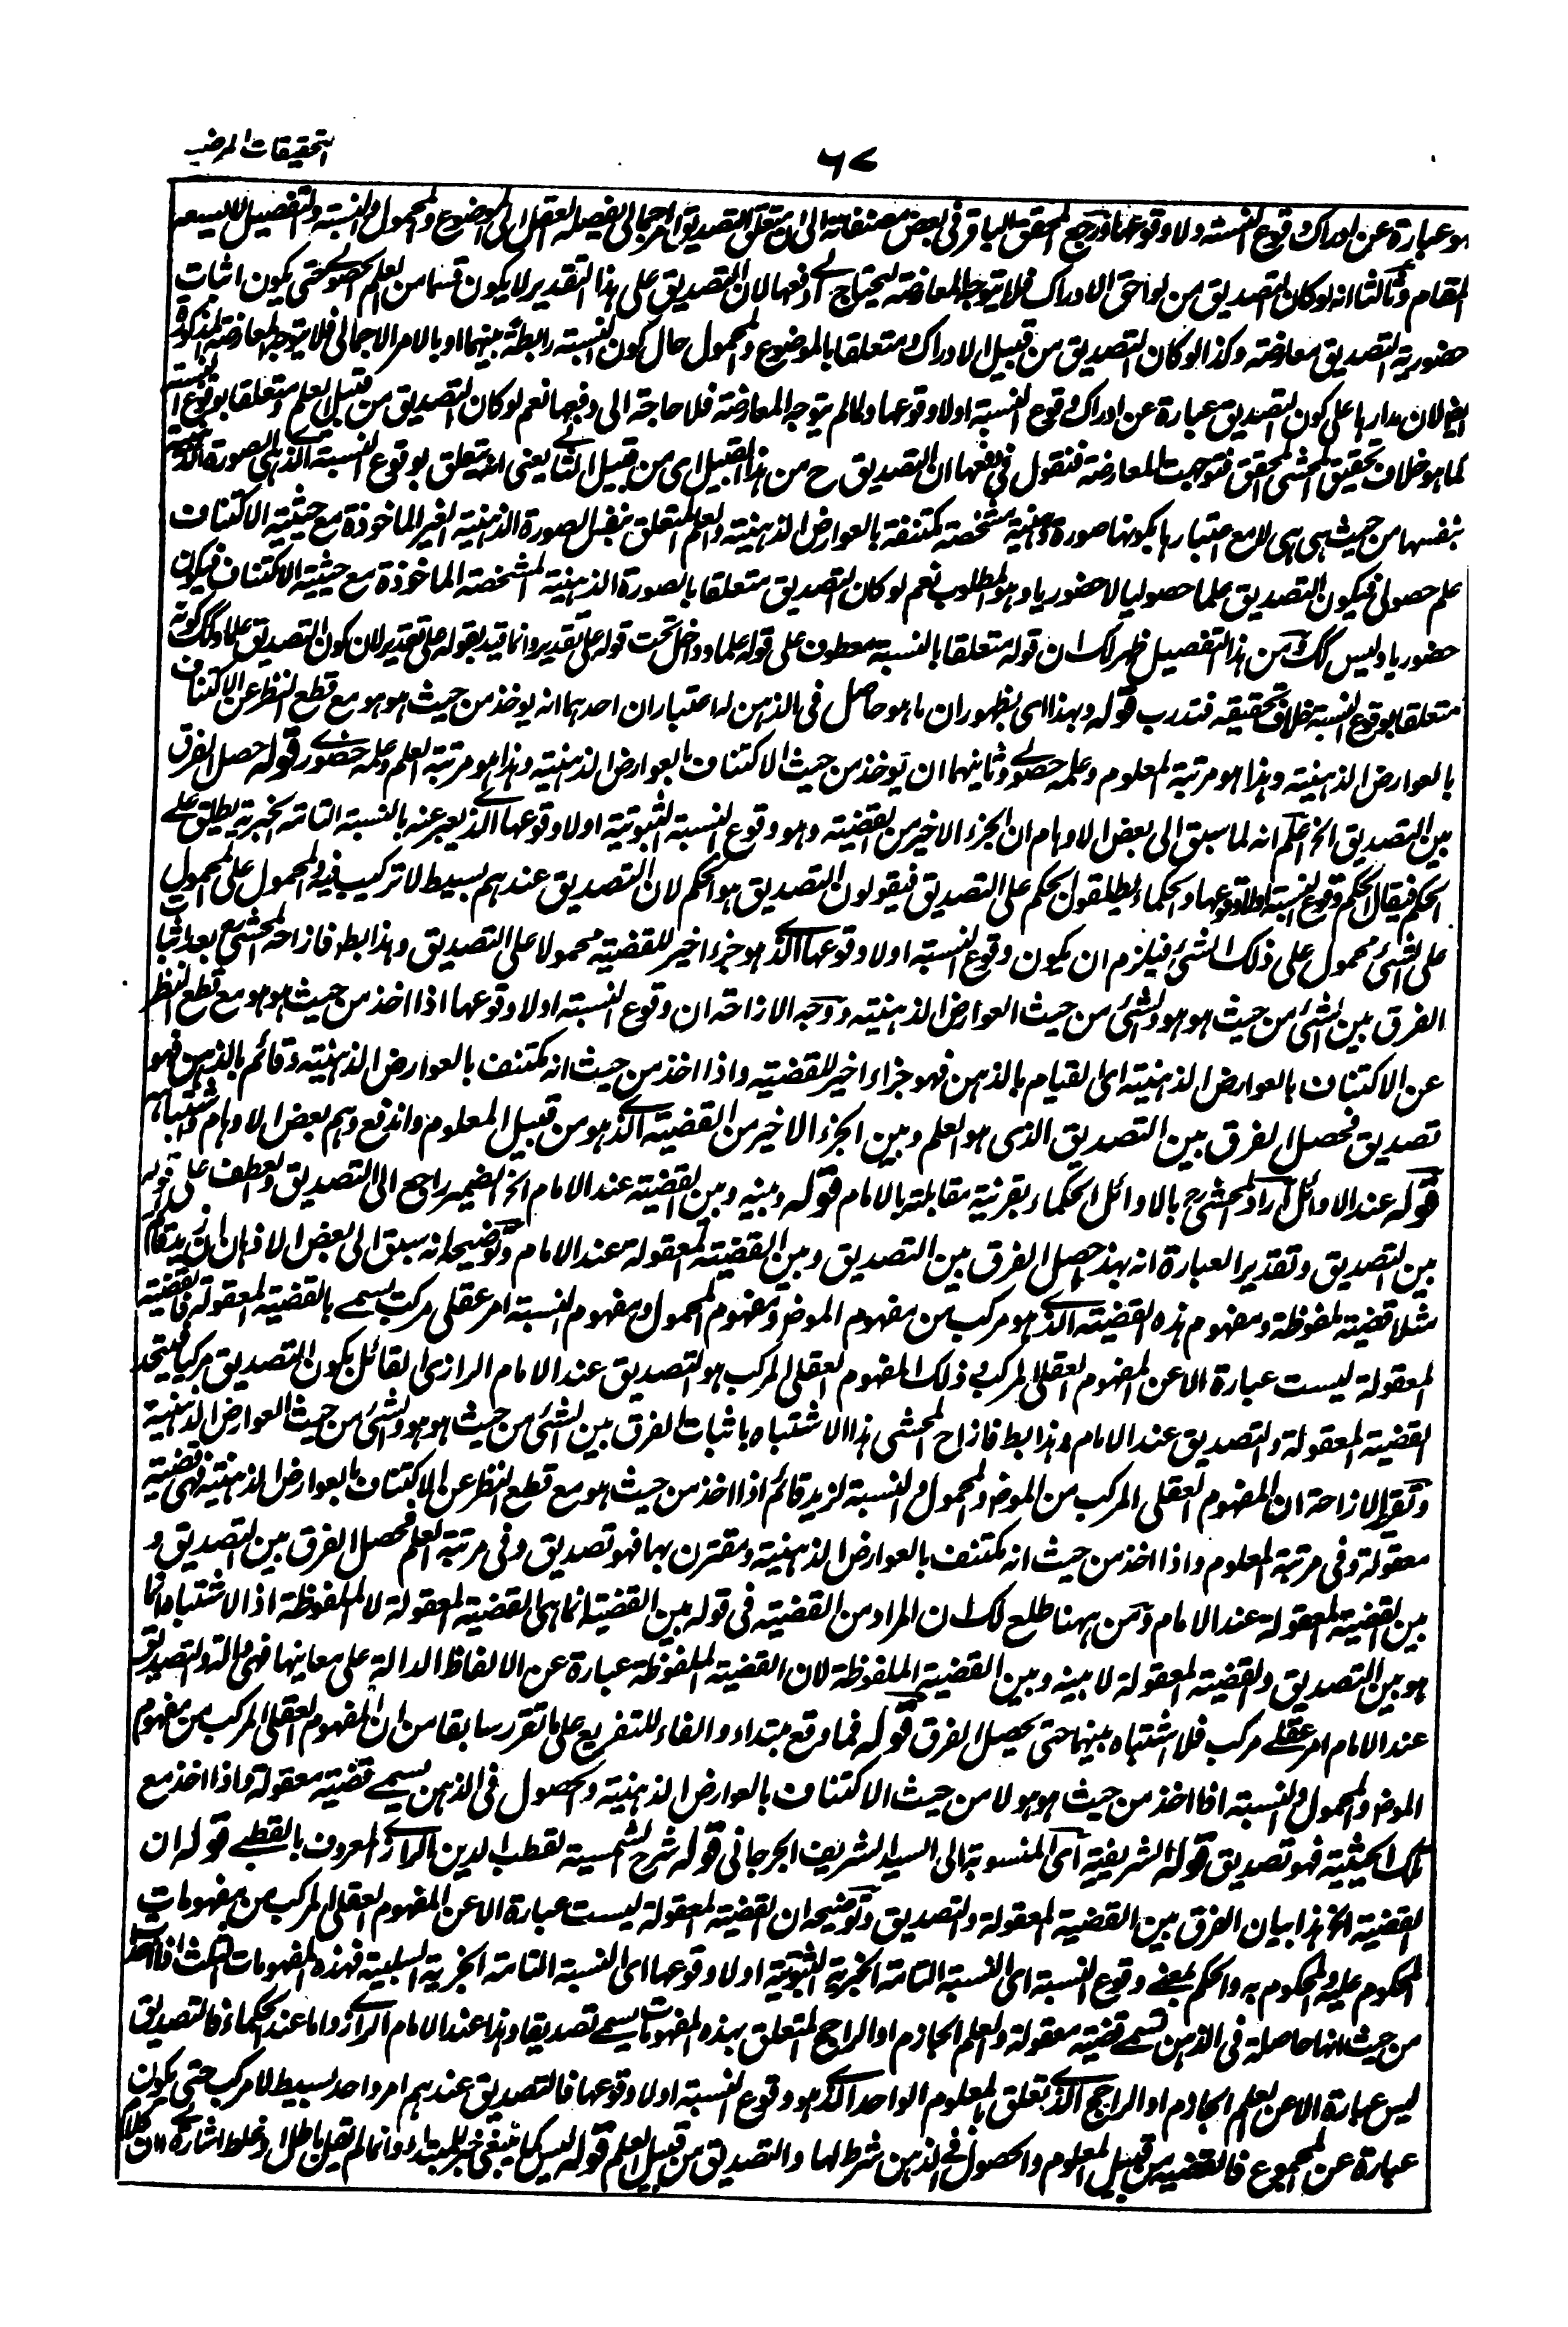 التحقيقات المرضیہ
٦٧
هو عبارة عن ادراك وقوع النسبة ولا وقوعها ورجح المحقق الباقر فى بعض مصنفاته الى ان متعلق التصديق امر اجمالى يفصله العقل الى الموضوع والمحمول والنسبة والتفصيل لا يسعه
المقام وثالثا انه لو كان التصديق من لواحق الادراك فلا يتوجه المعارضة ليحتاج الى دفعها لان التصديق على هذا التقدير لا يكون قسما من العلم الحصولى حتى يكون اثبات
حضورية التصديق معارضة وكذا لو كان التصديق من قبيل الادراك ومتعلقا بالموضوع والمحمول حال كون النسبة رابطة بينهما او بالامر الاجمالى فلا يتوجه المعارضة المذكورة
ايضا لان مدارها على كون التصديق عبارة عن ادراك وقوع النسبة اولا وقوعها ولما لم يتوجه المعارضة فلا حاجة الى دفعها نعم لو كان التصديق من قبيل العلم ومتعلقا بوقوع النسبة
كما هو خلاف تحقيق المحشى المحقق فتوجهت المعارضة فنقول فى دفعها ان التصديق ح من هذا القبيل اى من قبيل الثانى يعنى انه يتعلق بوقوع النسبة الذى هى الصورة الذهنية
بنفسها من حيث هى هى لا مع اعتبارها بكونها صورة ذهنية مشخصة مكتنفة بالعوارض الذهنية والعلم المتعلق بنفس الصورة الذهنية الغير الماخوذة مع حيثية الاكتناف
علم حصولى فيكون التصديق علما حصوليا لا حضوريا وهو المطلوب نعم لو كان التصديق متعلقا بالصورة الذهنية المشخصة الماخوذة مع حيثية الاكتناف فيكون
حضوريا وليس كك ومن هذا التفصيل ظهر لك ان قوله متعلقا بالنسبة معطوف على قوله علما وداخل تحت قوله على تقدير وانما قيد بقوله على تقدير لان كون التصديق علما وكك كونه
متعلقا بوقوع النسبة خلاف تحقيقه فتدرب قوله وبهذا اى بظهور ان ما هو حاصل فى الذهن له اعتباران احدهما انه يوخذ من حيث هو هو مع قطع النظر عن الاكتناف
بالعوارض الذهنية وهذا هو مرتبة المعلوم وعلمه حصولى وثانيهما ان يوخذ من حيث الاكتناف بالعوارض الذهنية وهذا هو مرتبة العلم وعلمه حضورى قوله حصل الفرق
بين التصديق الخ اعلم انه لما سبق الى بعض الاوهام ان الجزء الاخير من القضية وهو وقوع النسبة الثبوتية اولا وقوعها الذى يعبر عنه بالنسبة التامة الخبرية يطلق عليه
الحكم فيقال الحكم وقوع النسبة اولا وقوعها والحكماء يطلقون الحكم على التصديق فيقولون التصديق هو الحكم لان التصديق عندهم بسيط لا تركيب فيه والمحمول على المحمول
على الشئ محمول على ذلك الشئ فيلزم ان يكون وقوع النسبة اولا وقوعها الذى هو جزء اخير للقضية محمولا على التصديق وهذا بط فازاحه المحشى مع بعد اثبات
الفرق بين الشئ من حيث هو هو والشئ من حيث العوارض الذهنية ووجه الازاحة ان وقوع النسبة اولا وقوعها اذا اخذ من حيث هو هو مع قطع النظر
عن الاكتناف بالعوارض الذهنية اى القيام بالذهن فهو جزء اخير للقضية واذا اخذ من حيث انه مكتنف بالعوارض الذهنية وقائم بالذهن فهو
تصديق فحصل الفرق بين التصديق الذى هو العلم وبين الجزء الاخير من القضية الذى هو من قبيل المعلوم واندفع وهم بعض الاوهام واشتباهه
قوله عند الاوائل اراد المحشى رح بالاوائل الحكماء بقرينة مقابلته بالامام قوله وبينه وبين القضية عند الامام الخ الضمير راجع الى التصديق والعطف على قوله
بين التصديق وتقدير العبارة انه بهذا حصل الفرق بين التصديق وبين القضية المعقولة عند الامام وتوضيحه انه سبق الى بعض الاذهان ان زيد قائم
مثلا قضية ملفوظة ومفهوم هذه القضية الذى هو مركب من مفهوم الموضوع ومفهوم المحمول ومفهوم النسبة امر عقلى مركب يسمى بالقضية المعقولة فالقضية
المعقولة ليست عبارة الا عن المفهوم العقلى المركب وذلك المفهوم العقلى المركب هو التصديق عند الامام الرازى القائل بكون التصديق مركبا فيتحد
القضية المعقولة والتصديق عند الامام وهذا بط فازاح المحشى هذا الاشتباه باثبات الفرق بين الشئ من حيث هو هو والشئ من حيث العوارض الذهنية
وتقرير الازاحة ان المفهوم العقلى المركب من الموضوع والمحمول والنسبة لزيد قائم اذا اخذ من حيث هو مع قطع النظر عن الاكتناف بالعوارض الذهنية فهى قضية
معقولة وفى مرتبة المعلوم واذا اخذ من حيث انه مكتنف بالعوارض الذهنية ومقترن بها فهو تصديق وفى مرتبة العلم فحصل الفرق بين التصديق و
بين القضية المعقولة عند الامام ومن ههنا طلع لك ان المراد من القضية فى قوله بين القضية انما هى القضية المعقولة لا الملفوظة اذ الاشتباه انما
هو بين التصديق والقضية المعقولة لا بينه وبين القضية الملفوظة لان القضية الملفوظة عبارة عن الالفاظ الدالة على معانيها فهى دالة والتصديق
عند الامام امر عقلى مركب فلا اشتباه بينهما حتى يحصل الفرق قوله فما وقع مبتداء والفاء للتفريع على ما تقرر سابقا من ان المفهوم العقلى المركب من مفهوم
الموضوع والمحمول والنسبة اذا اخذ من حيث هو هو لا من حيث الاكتناف بالعوارض الذهنية والحصول فى الذهن يسمى قضية معقولة واذا اخذ مع
تلك الحيثية فهو تصديق قوله الشريفية اى المنسوبة الى السيد الشريف الجرجانى قوله شرح الشمسية لقطب الدين الرازى المعروف بالقطبى قوله ان
القضية الخ هذا بيان الفرق بين القضية المعقولة والتصديق وتوضيحه ان القضية المعقولة ليست عبارة الا عن المفهوم العقلى المركب من مفهومات
المحكوم عليه والمحكوم به والحكم بمعنى وقوع النسبة اى النسبة التامة الخبرية الثبوتية اولا وقوعها اى النسبة التامة الخبرية السلبية فهذه المفهومات الثلث اذا اخذت
من حيث انها حاصلة فى الذهن تسمى قضية معقولة والعلم الجازم او الراجح المتعلق بهذه المفهومات يسمى تصديقا وهذا عند الامام الرازى واما عند الحكماء فالتصديق
ليس عبارة الا عن العلم الجازم او الراجح الذى تعلق بالمعلوم الواحد الذى هو وقوع النسبة اولا وقوعها فالتصديق عندهم امر واحد بسيط لا مركب حتى يكون
عبارة عن المجموع فالقضية من قبيل المعلوم والحصول فى الذهن شرط لها والتصديق من قبيل العلم قوله ليس كما ينبغى خبر للمبتداء وانما لم يقل باطل او غلط اشارة الى ان كلام